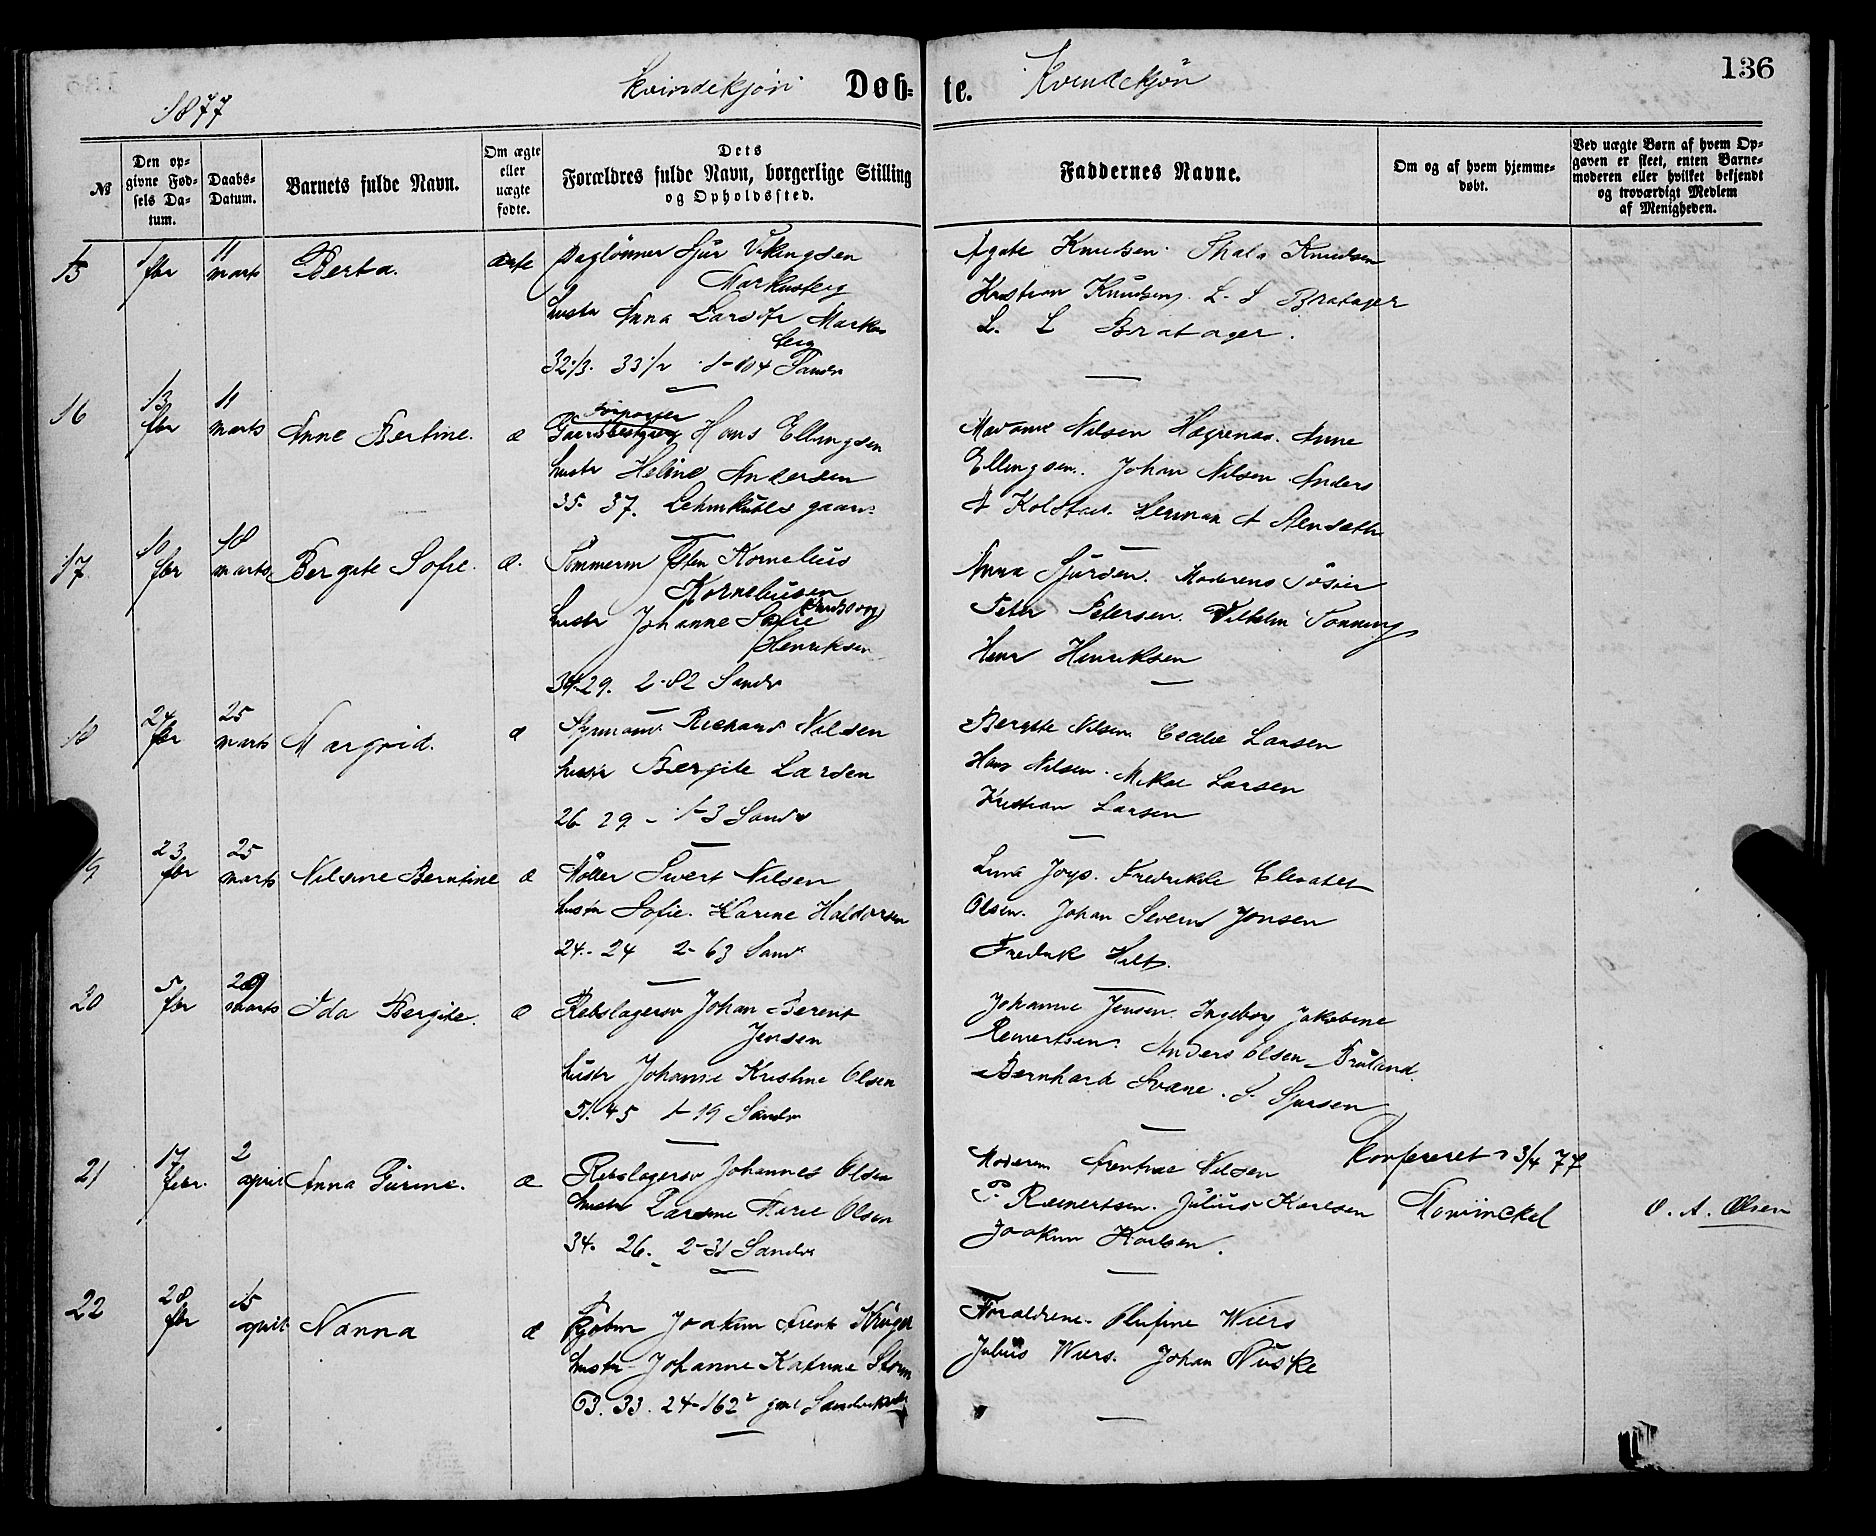 136
Kvindekjön Døb-te. Kvendekjön
1877
№
Den op-
givne Fød-
sels Da-
tum.
Daabs-
Datum.
Barnets fulde Navn.
Om ægte
eller
uægte
fødte.
Dets
Forældres fulde Navn, borgerlige Stilling
og Opholdssted.
Faddernes Navne.
Om og af hvem hjemme-
døbt.
Ved uægte Børn af hvem Op-
gaven er skeet, enten Barne-
moderen eller hvilket bekjendt
og troværdigt Medlem
af Menigheden.
15 1 fbr 11 marts Berta. ægte Daglönner Sjur Vikingsen
Markusteig
hustr Anna Larsdtr Markus
teig
32 1/3. 33 1/2 1-104 Sandv
Agate Knudsen. Thala Knudsen
Kristian Knudsen. L. S Bratager
L. L Bratager.
16 13 fbr 11 marts Anne Bertine. æ Hans Ellingsen
hustr Heline Andersen
35. 37. Lehmkuhls gaarn
Madame Nilsen Hegrenæs. Anne
Ellingsen. Johan Nilsen Anders
A Kolstad. Herman A
17 10 fbr 18 marts Bergite Sofie. æ. Tömmerm Kornelius
Korneliusen
hustr Johanne Sofie
Henriksen
34-29. 2-82 Sandv
Anna Sjursen. Moderens Söster
Peter Petersen. Vilhelm Tonning
Henr Henriksen
18 24 fbr 25 marts Margrid. æ Styrmand Richard Nilsen
hustr Bergite Larsen
26 29 - 1-3 Sandv
Bergitte Nilsen. Cecilie Larsen
Hans Nilsen. Mikal Larsen
Kristian Larsen
19 23 fbr 25 marts Nilsine Berntine æ Möller Sivert Nilsen
hustr Sofie Karine Haldorsen
24.- 24 2-63 Sandv
Lina Joys. Fredrikke Elisabet
Olsen. Johan Severin Jonsen
Fredrik Hilt.
20 5 fbr 29 marts Ida Bergite. æ Rebslagersv Johan Berent
Jensen
hustr Johanne Kristine Olsen
51. 45 1-19 Sandv
Johanne Jensen. Ingeborg Jakobine
Reinertsen. Anders Olsen Bruland.
Bernhard Svane. S. Sjursen
21 17 febr. 2 april Anna Gurine. æ Rebslagersv Johannes Olsen
hustr Larsine Marie Olsen
34. 26. 2-31 Sandv
Moderen Nilsen
P. Reinertsen. Julius Karlsen
Joakim Karlsen.
Konfereret 3/4 77
Mowinckel
O. A. Olsen
22 28 fbr 15 april Nanna æ Kjöbm Joakim Fredr Krüger
hustr Johanne Katrine Storm
63. 33. 24-162² Sandviksv
Forældrene. Olufine Wiers
Julius Wiers. Johan Nüske